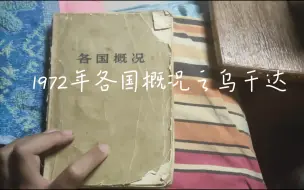 各国概况
1972年各国概况之乌干达